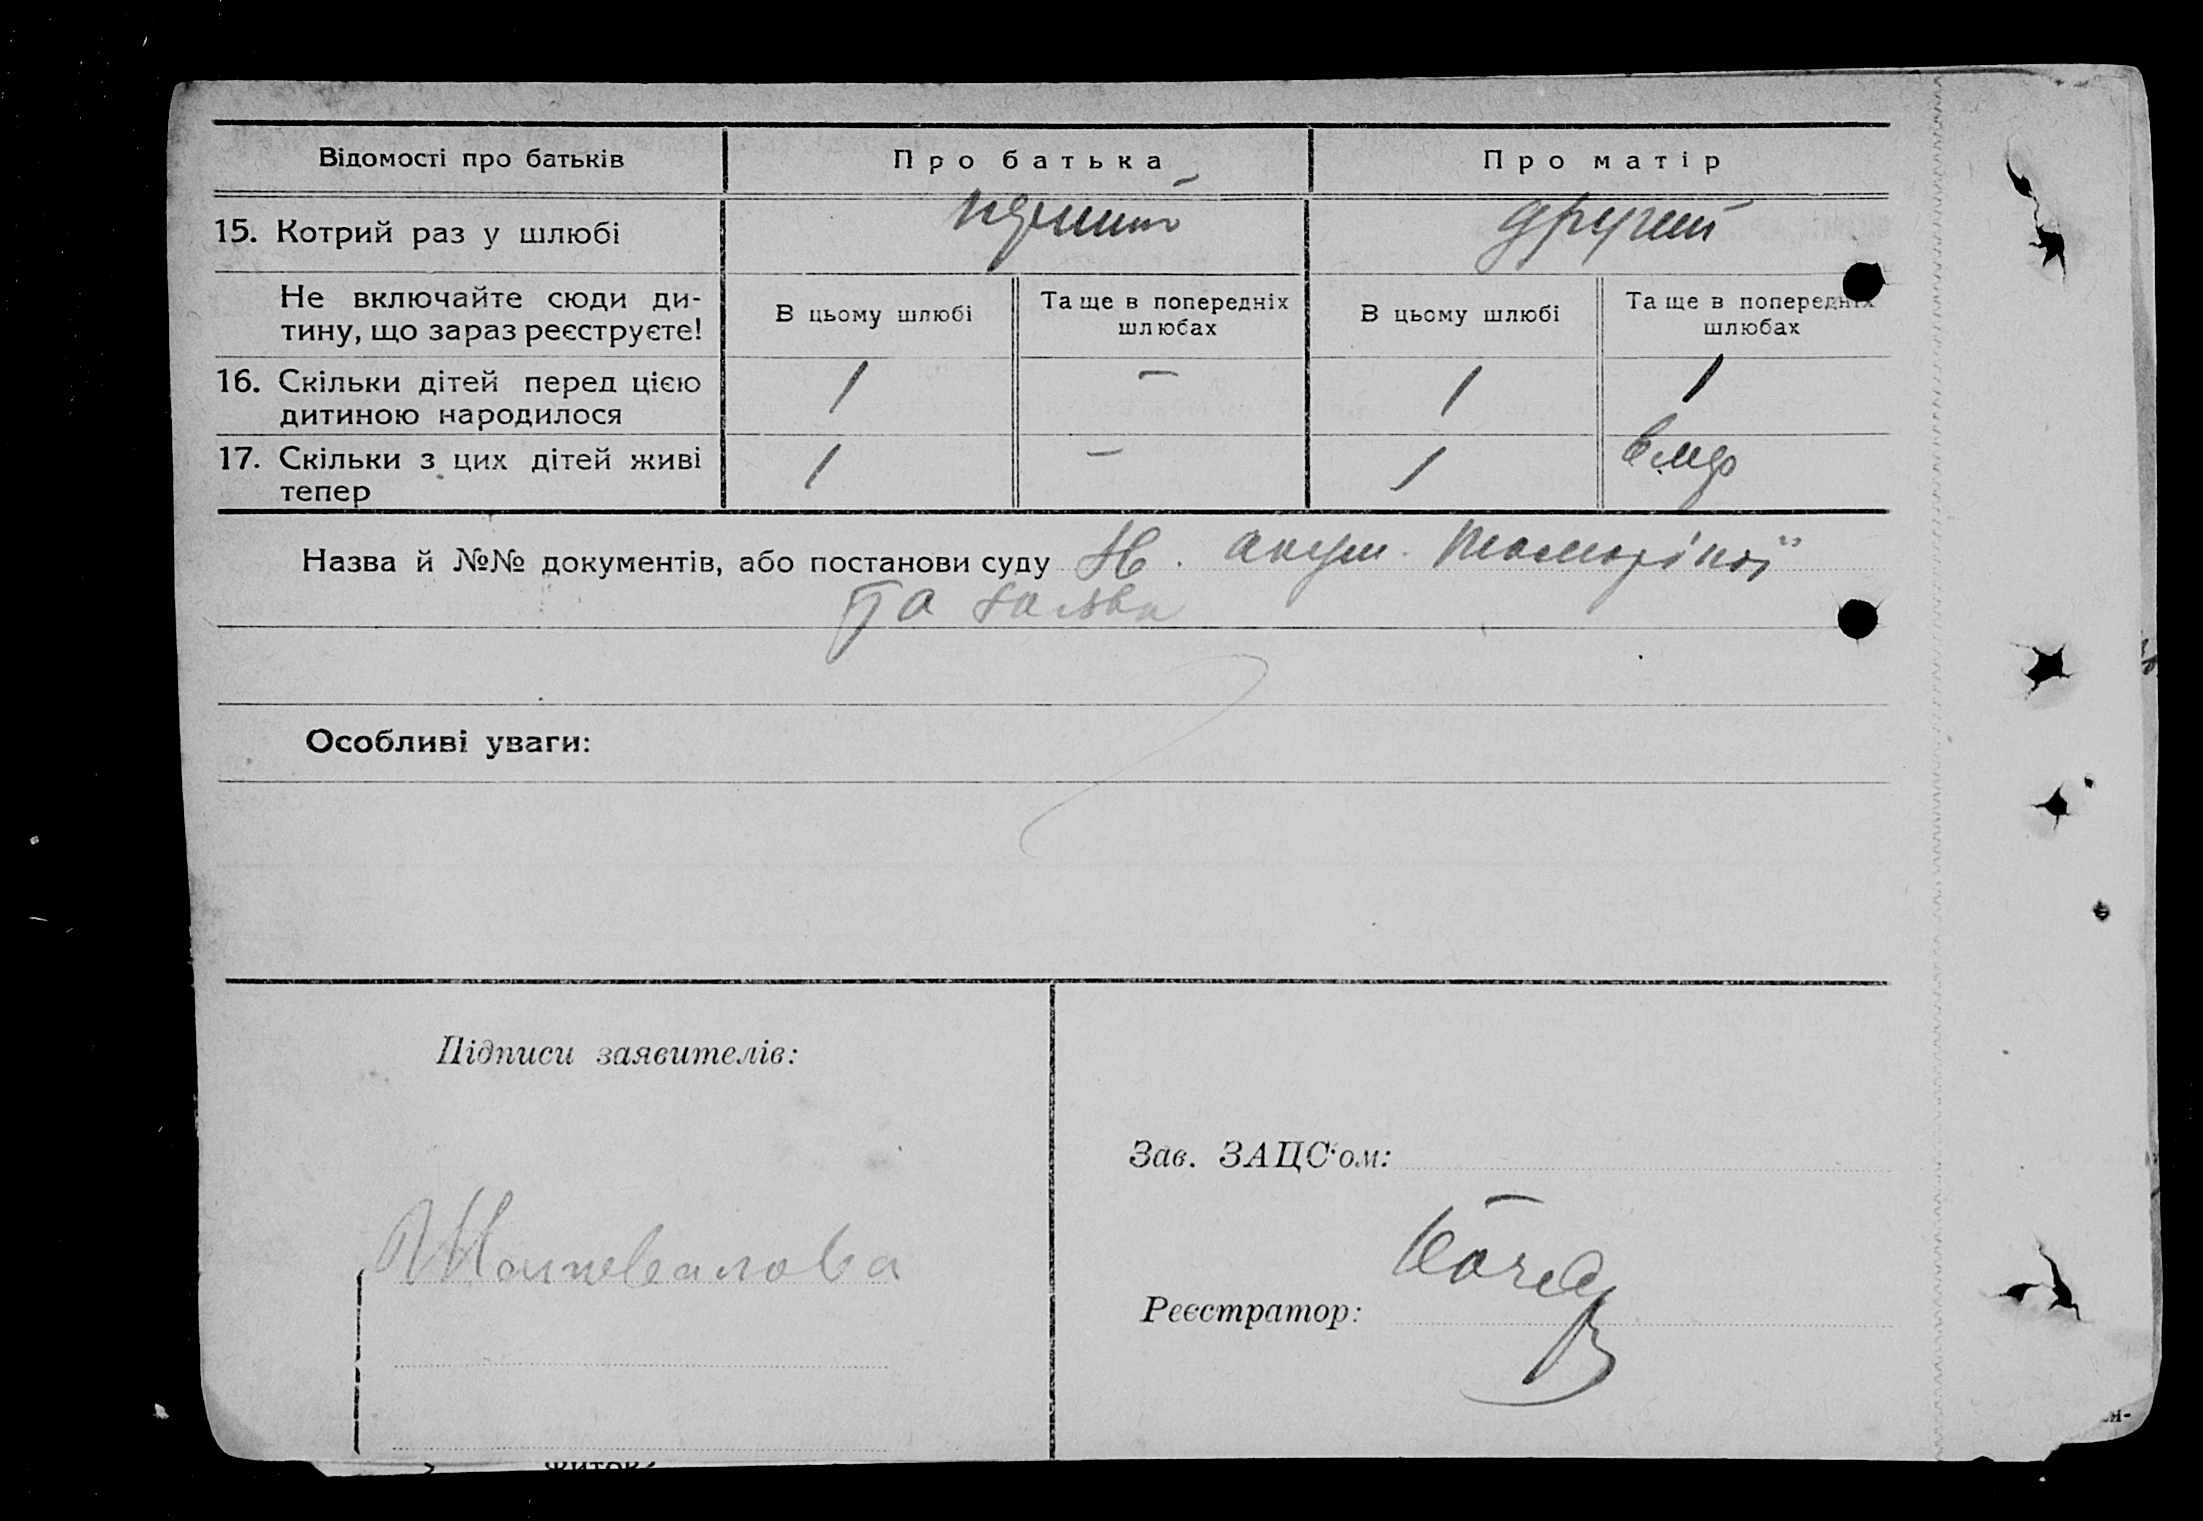 Відомості про батьків
Про батька
Про матір
15. Котрий раз у шлюбі
другий
Не включайте сюди ди-
тину, що зараз реєструєте!
В цьому шлюбі
Та ще в попередніх
шлюбах
В цьому шлюбі
Та ще в попередніх
шлюбах
16. Скільки дітей перед цією
дитиною народилося
1
–
1
1
17. Скільки з цих дітей живі
тепер
1
–
1
Назва й №№ документів, або постанови суду
та заява
Особливі уваги:
Підписи заявителів:
Зав. ЗАЦС'ом:
Реєстратор: